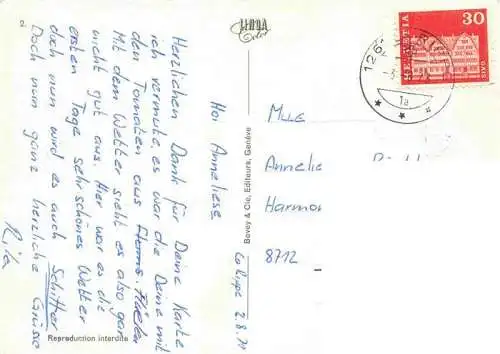 Hoi Anneliese
Herzlichen Dank für Deine Karte
ich vermute, es war die Deine mit
den Tomaten aus
Mit dem Wetter sieht es also gar
nicht gut aus. Hier war es die
ersten Tage sehr schönes Wetter
doch nun wird es auch Schitter
Doch nun ganz herzliche Grüsse
Rita
2.8.71
Bovey & Cie, Editeurs, Genève
Reproduction interdite
HELVETIA
30
Annelie
Harmon
8712